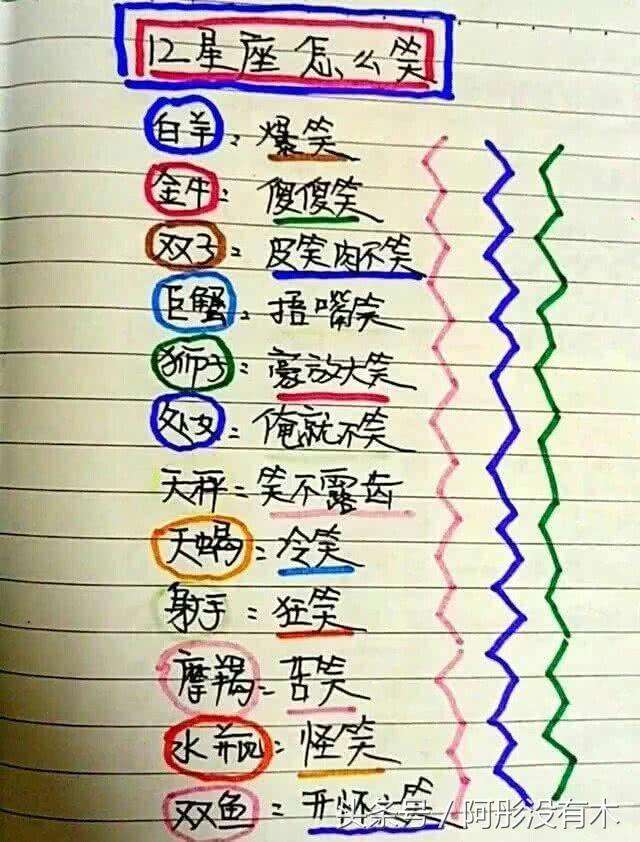 12星座怎么笑
白羊：爆笑
金牛：傻傻笑
双子：皮笑肉不笑
巨蟹：捂嘴笑
狮子：豪放大笑
处女：俺就不笑
天秤：笑不露齿
天蝎：冷笑
射手：狂笑
摩羯：苦笑
水瓶：怪笑
双鱼：开怀笑
头条号 / 阿彤没有木